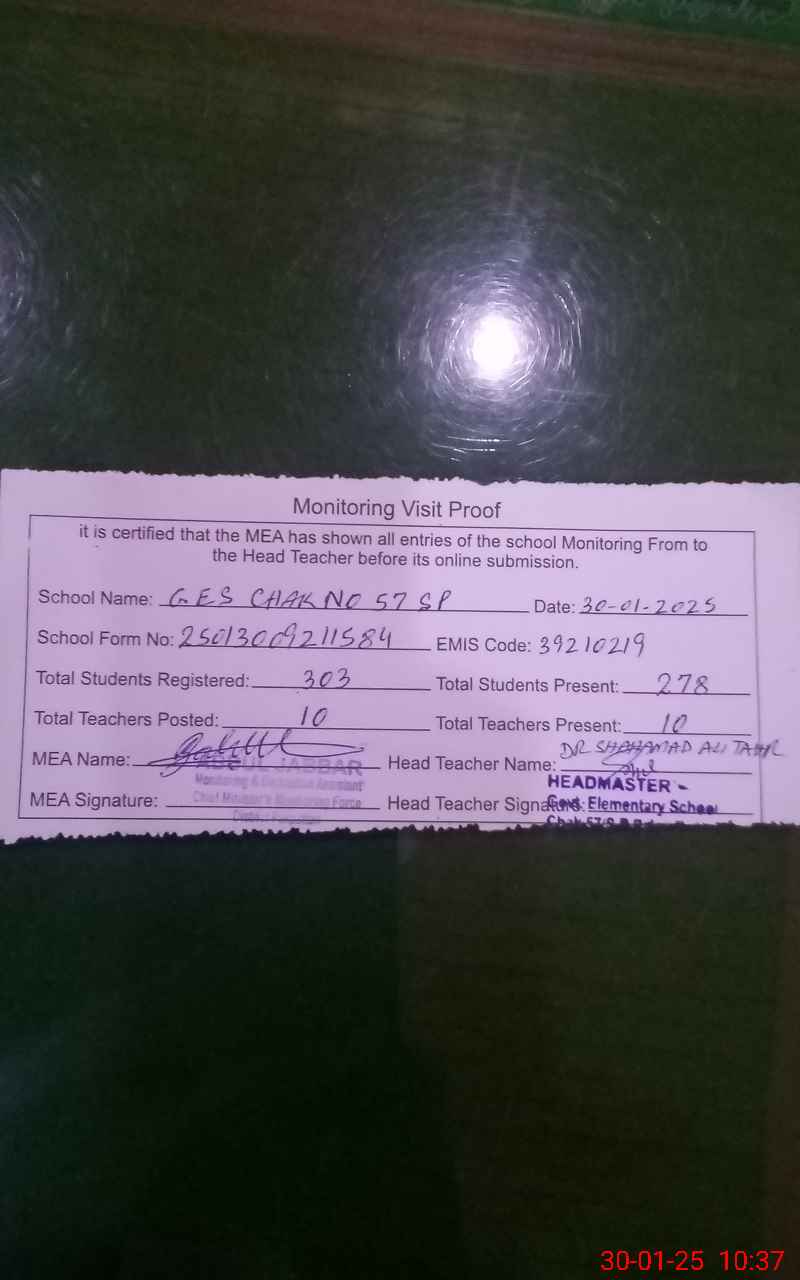 Monitoring Visit Proof
it is certified that the MEA has shown all entries of the school Monitoring From to
the Head Teacher before its online submission.
School Name: G.E.S CHAK NO 57 SP Date: 30-01-2025
School Form No: 25013009211584 EMIS Code: 39210219
Total Students Registered: 303 Total Students Present: 278
Total Teachers Posted: 10 Total Teachers Present: 10
MEA Name: ABDUL JABBAR Head Teacher Name: DR ALI
Monitoring & Evaluation Assistant HEADMASTER
MEA Signature: Chief Minister's Monitoring Force Head Teacher Signature: Govt: Elementary School
Chak 57
30-01-25 10:37